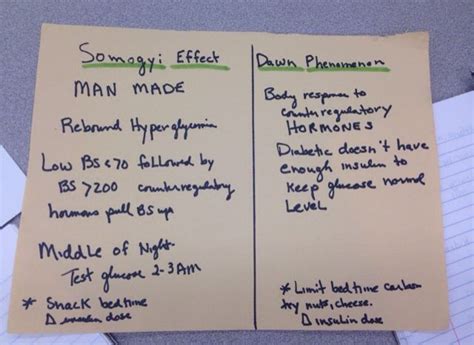 Somogyi Effect
MAN MADE
Rebound Hyperglycemia
Low BS <70 followed by
BS >200 counterregulatory
hormones pull BS up
Middle of Night-
Test glucose 2-3AM
* Snack bedtime
Δ insulin dose
Dawn Phenomenon
Body response to
counterregulatory
HORMONES
Diabetic doesn't have
enough insulin to
keep glucose normal
LEVEL
* Limit bedtime carbs
try nuts, cheese.
Δ insulin dose